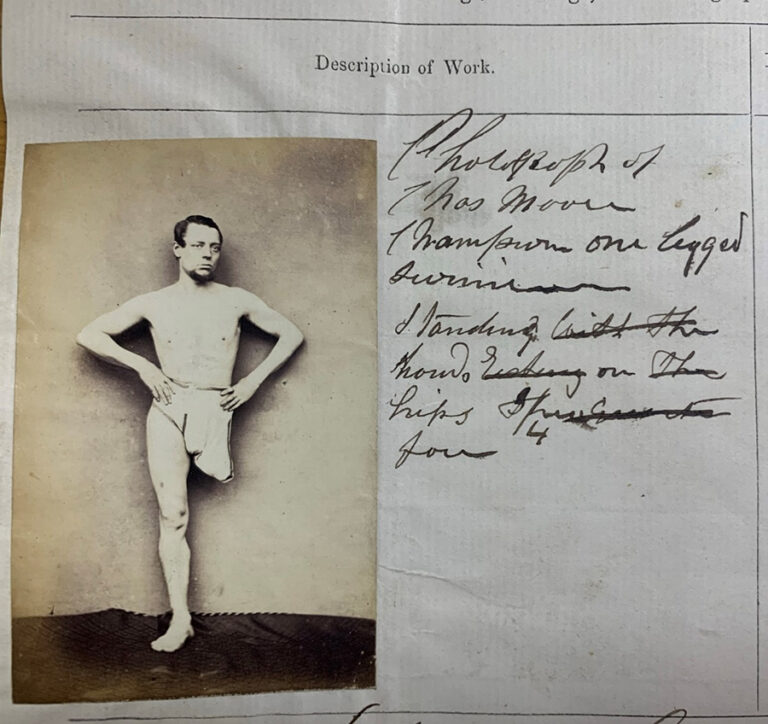 Description of Work.
Photograph of
Chas Moore
Champion one legged
swimmer
Standing with the
hands resting on the
hips
4